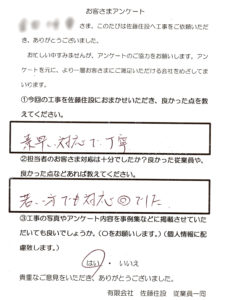 お客さまアンケート
さま、このたびは佐藤住設へ工事をご依頼いただ
き、ありがとうございました。
お忙しい中すみませんが、アンケートのご協力をお願いします。アン
ケートを元に、より一層お客さまにご満足いただける会社をめざしてま
いります。
①今回の工事を佐藤住設におまかせいただき、良かった点を教
えてください。
素早い対応で、丁寧
②担当者のお客さま対応は十分でしたか？良かった従業員や、
良かった点などあれば教えてください。
若い方でも対応◎でした。
③工事の写真やアンケート内容を事例集などに掲載させていた
だいても良いでしょうか。(○をお願いします。)(個人情報に配
慮致します。)
はい ・ いいえ
貴重なご意見をいただき、ありがとうございました。
有限会社 佐藤住設 従業員一同